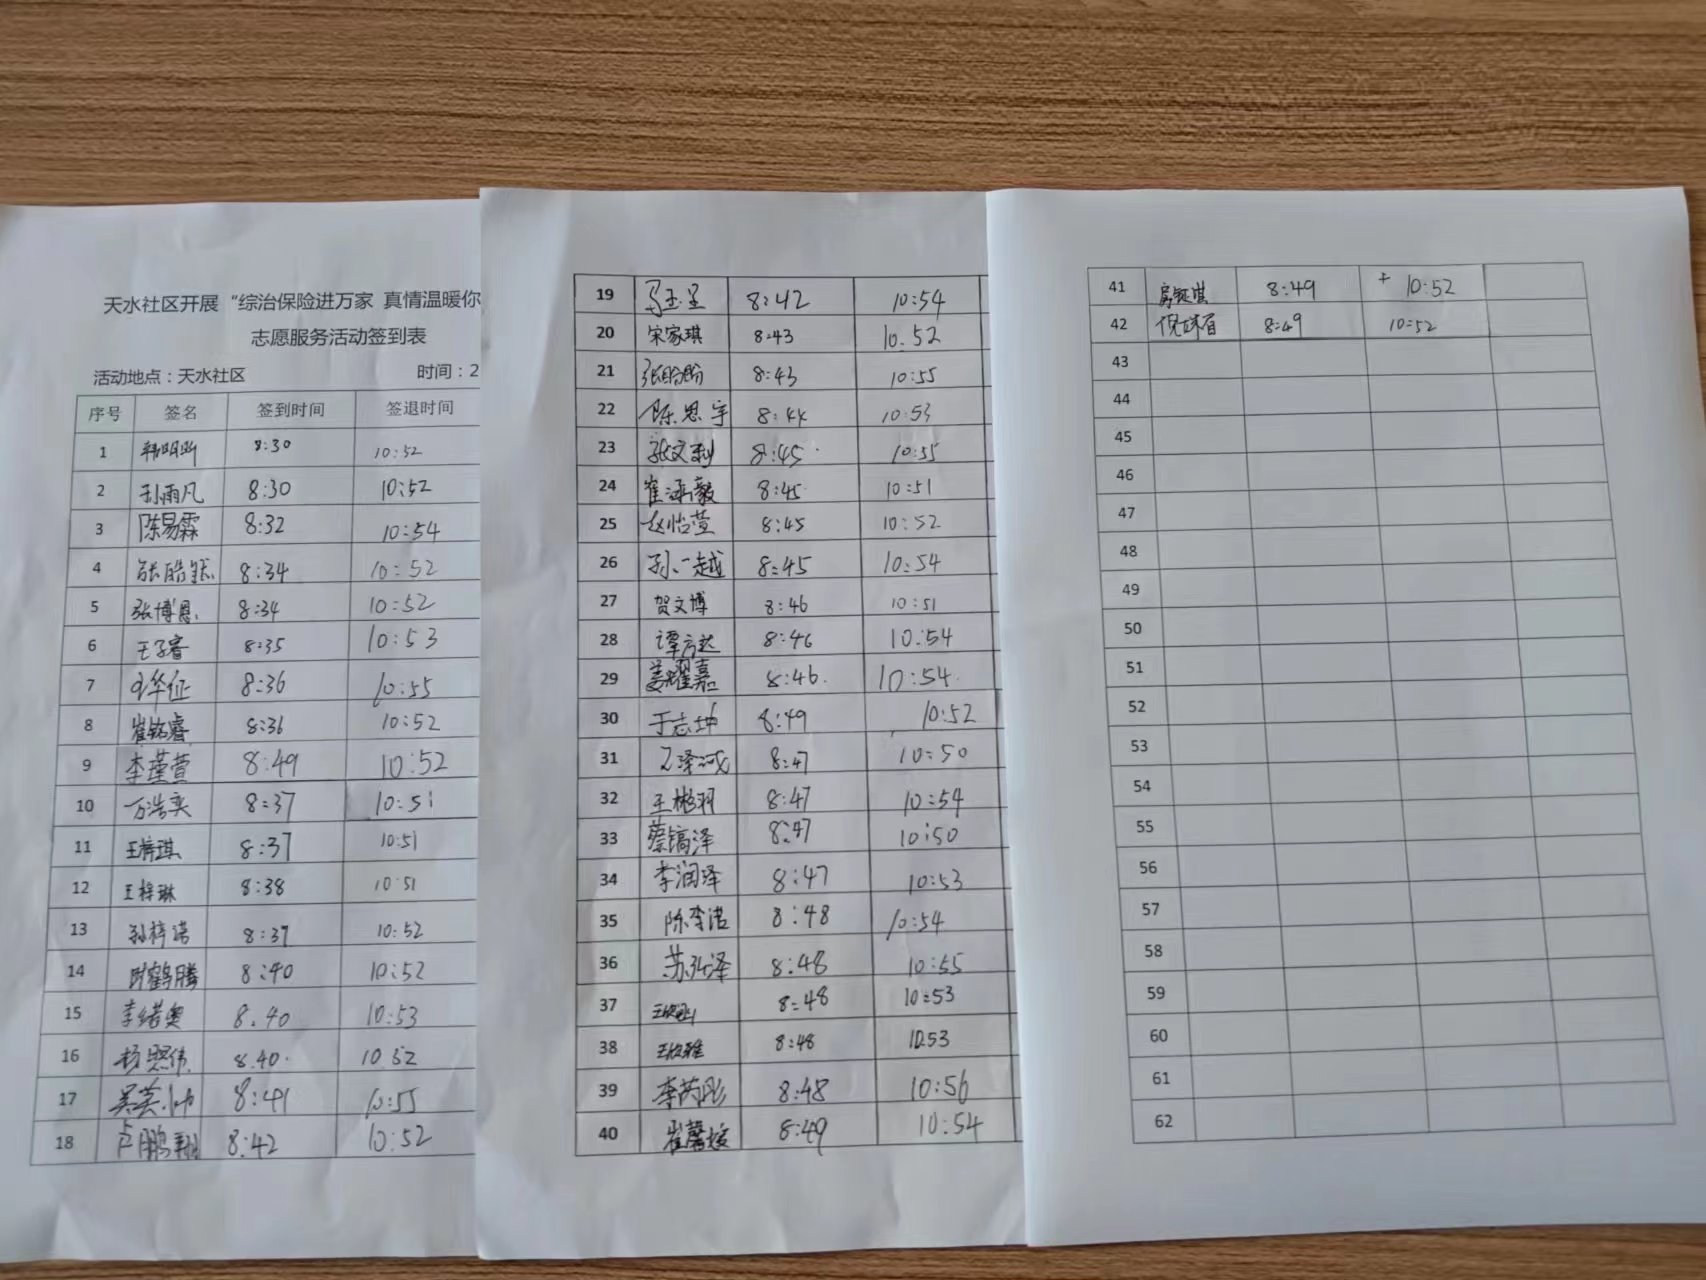 天水社区开展“综治保险进万家 真情温暖你
志愿服务活动签到表
活动地点：天水社区 时间：2
序号 签名 签到时间 签退时间
1 韩明 8:30 10:52
2 孙雨凡 8:30 10:52
3 陈易霖 8:32 10:54
4 张皓 8:34 10:52
5 张博恩 8:34 10:52
6 王子睿 8:35 10:53
7 华征 8:36 10:55
8 崔铭睿 8:36 10:52
9 李瑾萱 8:49 10:52
10 万浩奕 8:37 10:51
11 王梓琪 8:37 10:51
12 王梓琳 8:38 10:51
13 孙梓诺 8:37 10:52
14 鹤腾 8:40 10:52
15 李绪奥 8.40 10:53
16 杨熙伟 8.40 10 52
17 吴 8:41 10:55
18 卢鹏翔 8:42 10:52
19 马玉呈 8:42 10:54
20 宋家琪 8:43 10.52
21 张 8:43 10:55
22 陈思宇 8:44 10:53
23 张文利 8:45 10:55
24 崔涵毅 8:45 10:51
25 赵怡萱 8:45 10:52
26 孙一越 8:45 10:54
27 贺文博 8:46 10:51
28 谭方 8:46 10:54
29 姜耀嘉 8:46 10:54
30 于志坤 8:49 10:52
31 泽 8:47 10:50
32 王彬羽 8:47 10:54
33 蔡镐泽 8:47 10:50
34 李润泽 8:47 10:53
35 陈李诺 8:48 10:54
36 苏弘泽 8:48 10:55
37 王 8:48 10:53
38 王欣雅 8:48 10.53
39 李芮彤 8:48 10:56
40 崔馨媛 8:49 10:54
41 房钲淇 8:49 + 10:52
42 倪 8:49 10:52
43
44
45
46
47
48
49
50
51
52
53
54
55
56
57
58
59
60
61
62